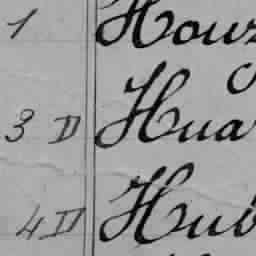 1 Houz
3 D Huar
4 D Hub